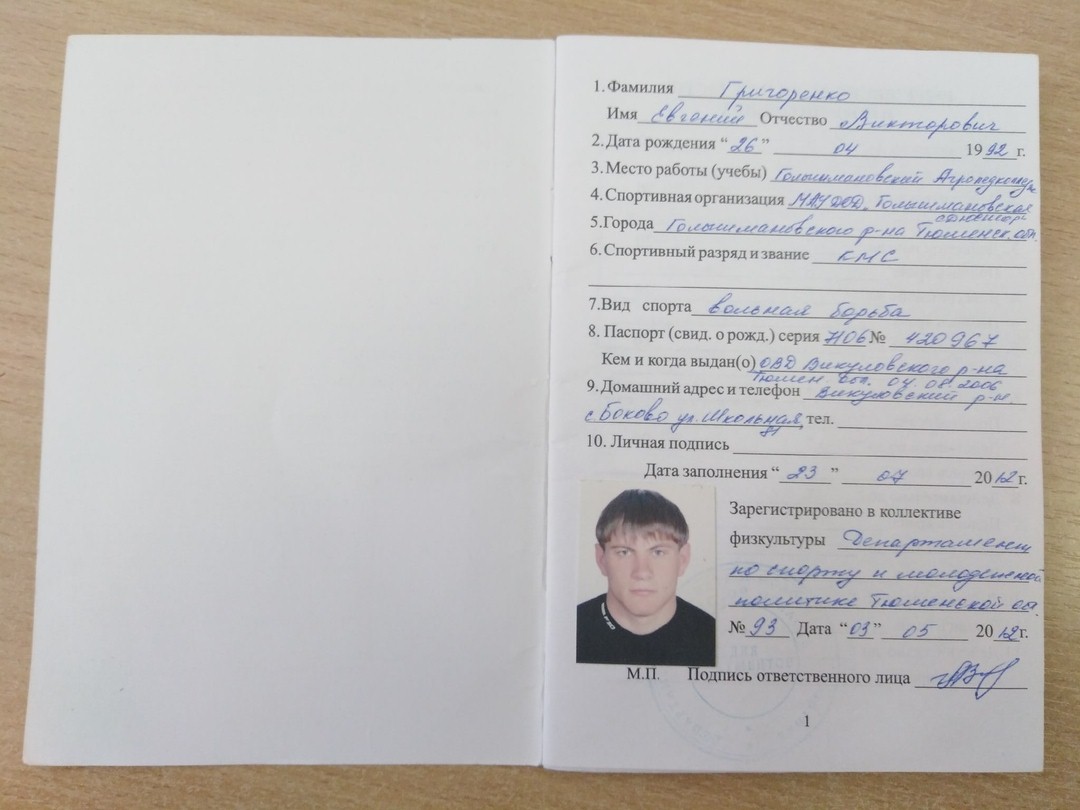 1. Фамилия Григоренко
Имя Евгений Отчество Викторович
2. Дата рождения “26” 04 1992 г.
3. Место работы (учебы) Голышмановский Агропедколледж
4. Спортивная организация МАУ ДОД, Голышмановская
5.Города Голышмановского р-на Тюменск. обл.
6. Спортивный разряд и звание КМС
7.Вид спорта вольная борьба
8. Паспорт (свид. о рожд.) серия 7106 № 420967
Кем и когда выдан(о) ОВД Викуловского р-на
Тюмен. обл. 04.08.2006
9. Домашний адрес и телефон Викуловский р-н.
с. Боково ул. Школьная, тел.
10. Личная подпись
Дата заполнения “23” 07 2012г.
Зарегистрировано в коллективе
физкультуры Департамент
по спорту и молодежной
политике Тюменской об.
№93 Дата “03” 05 2012г.
М.П. Подпись ответственного лица
1